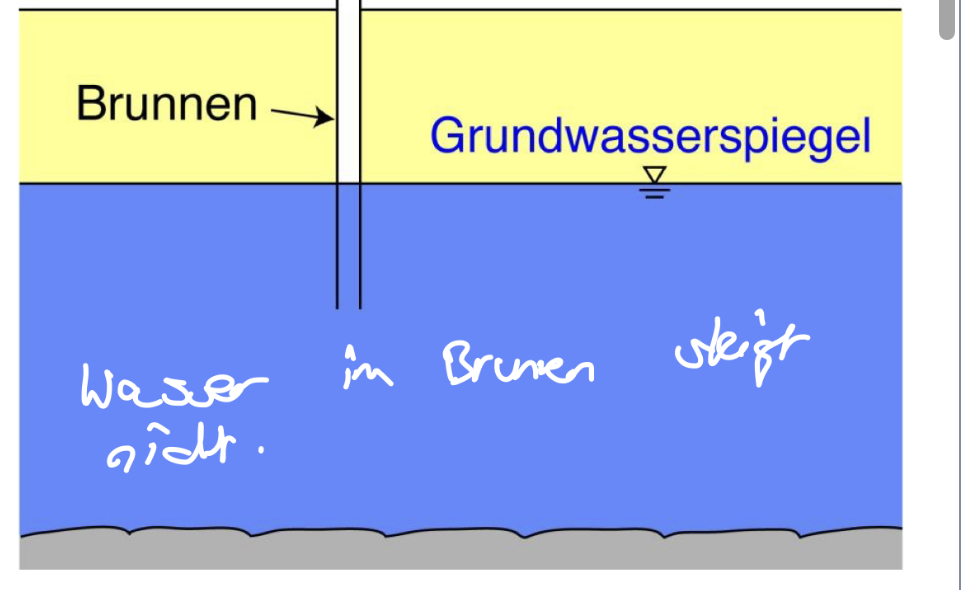 Brunnen
Grundwasserspiegel
Wasser im Brunnen steigt
nicht.